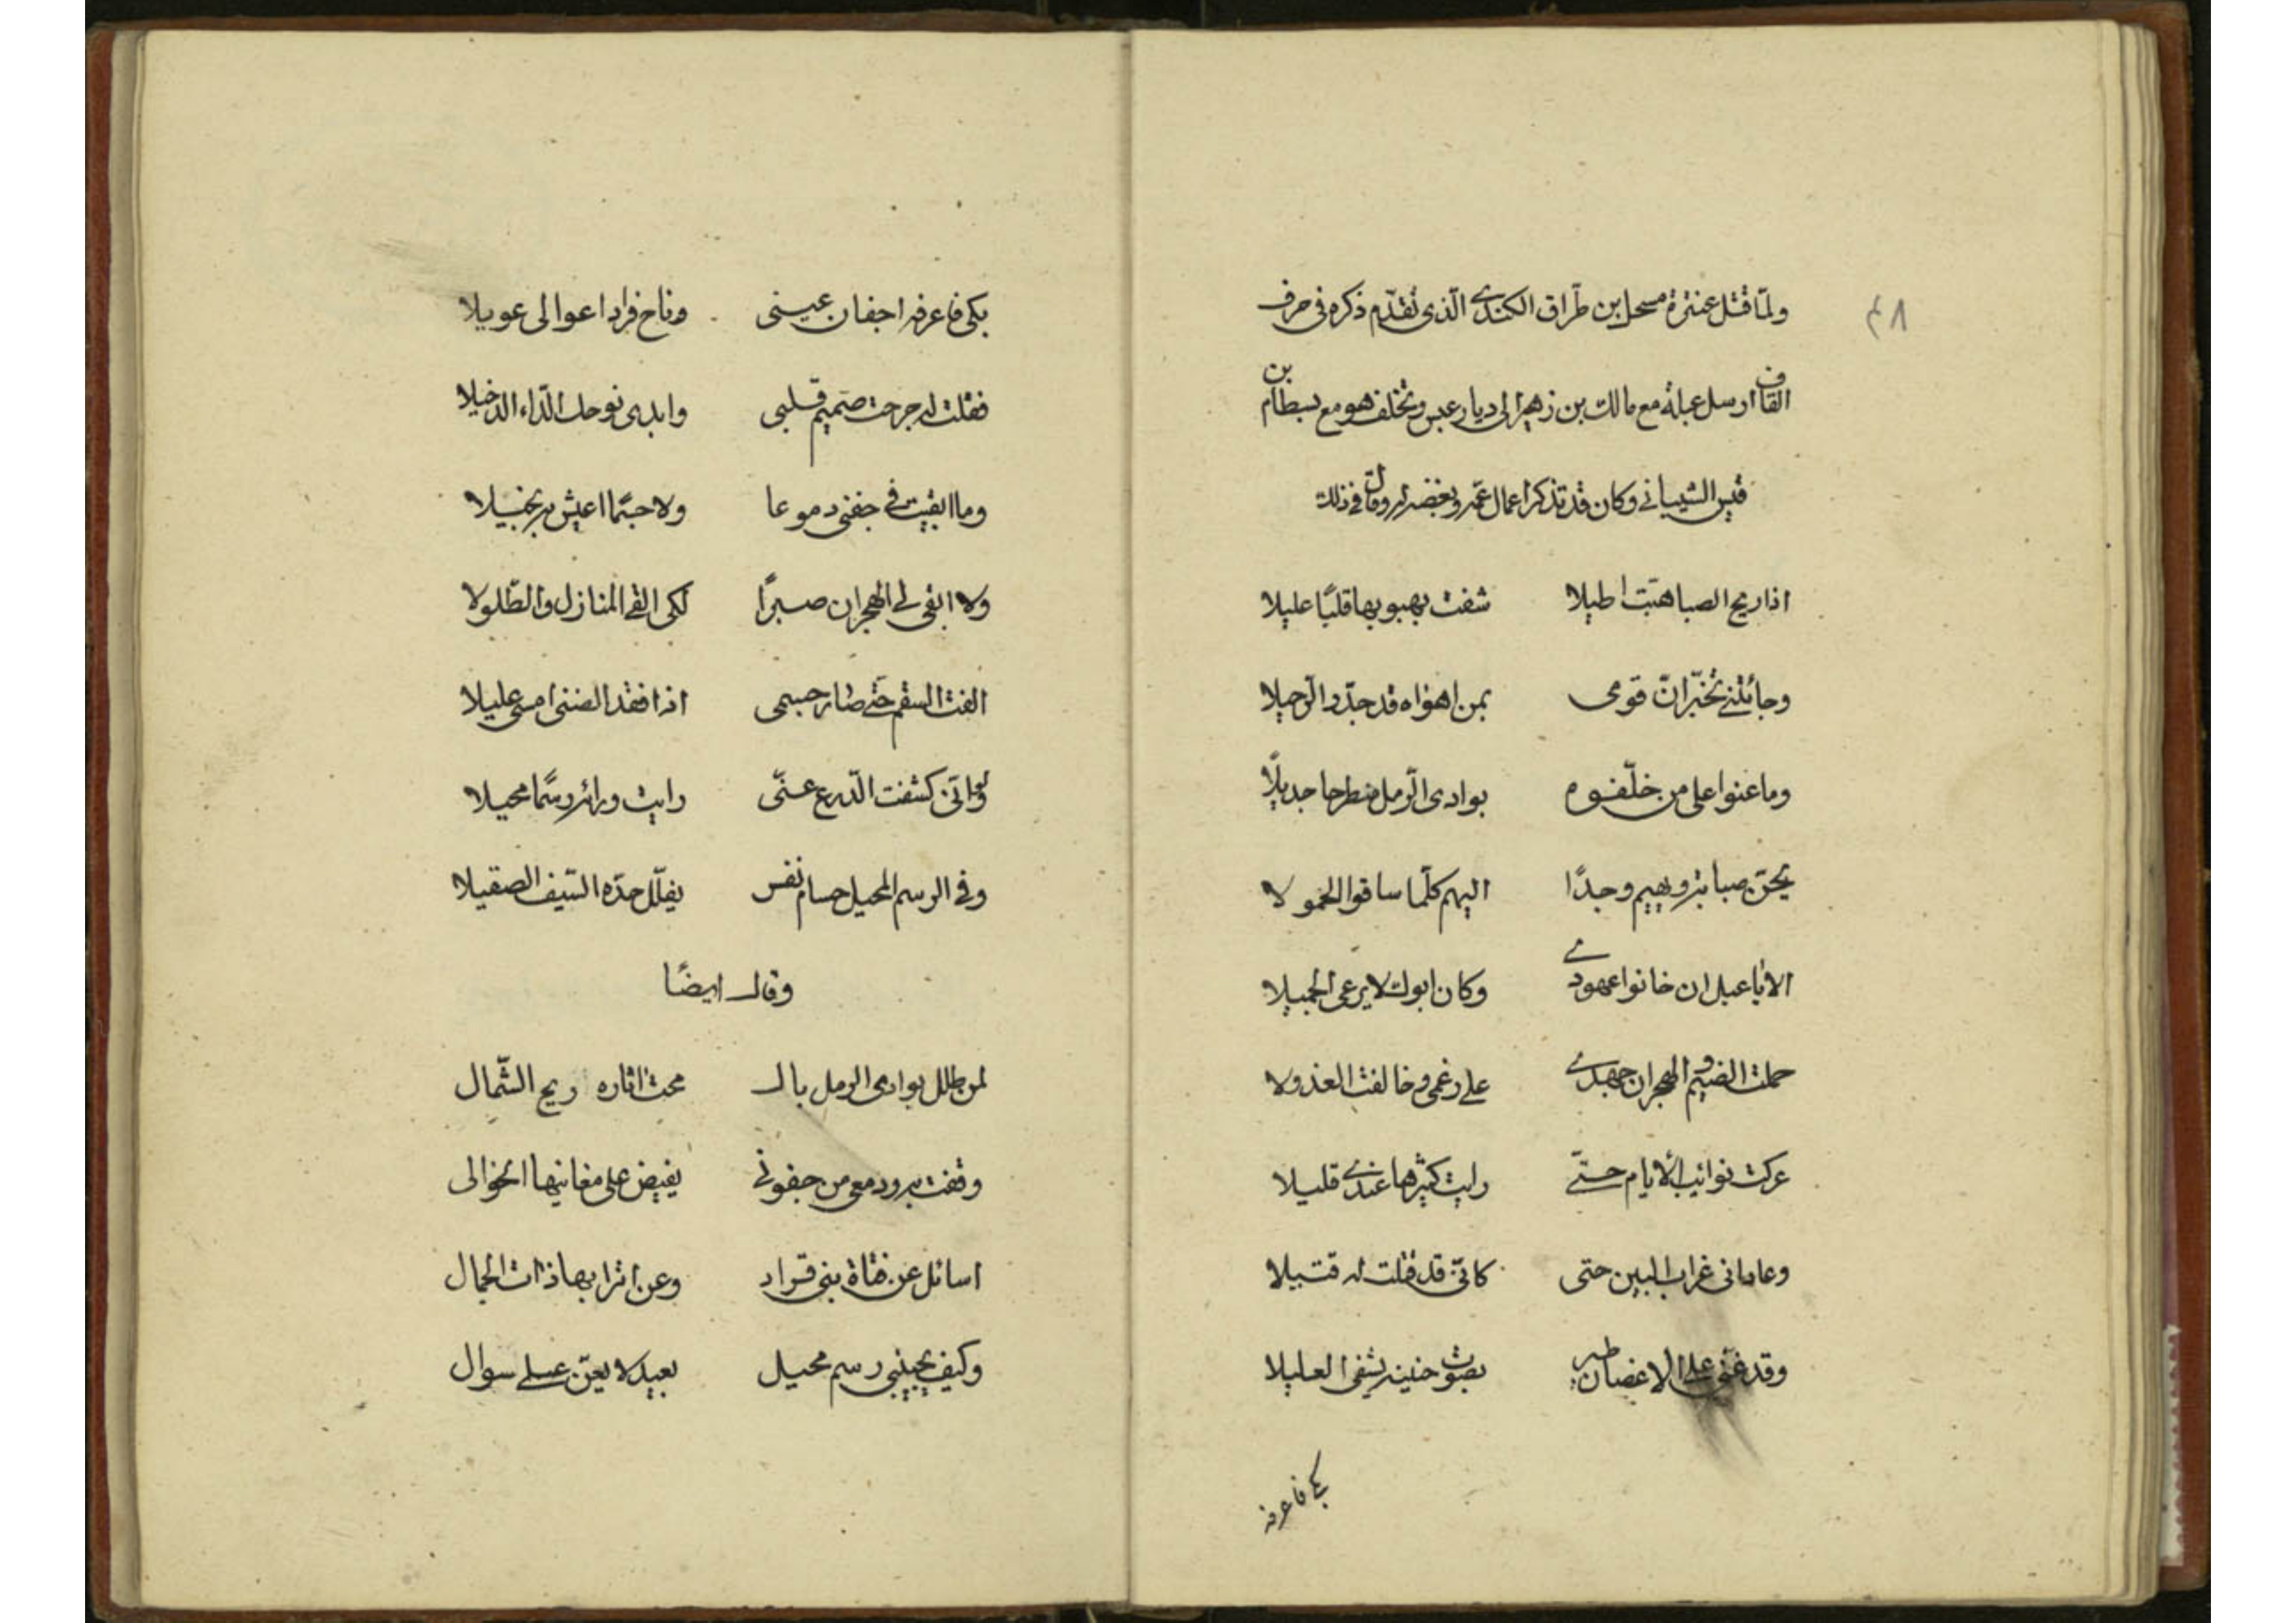 ٤٨
ولمّا قتل عنترة مسحل ابن طرّاق الكندي الّذى تقدّم ذكره فى حرف
القاف ارسل عبلة مع مالك بن زهير الى ديار عبس وتخلف هو مع بسطام بن
قيس الشيبانى وكان قد تذكر اعمال عمّه وبغضه له وقال فى ذلك
اذا ريح الصبا هبّت اصيلا شفت بهبوبها قلبًا عليلا
وجائتنى تخبّر انّ قومى بمن اهواه قد جدّوا الرّحيلا
وما عنوا على من خلّفوه بوادى الرّمل منطرحا جديلًا
يحنّ صبابة ويهيم وجدًا اليهم كلّما ساقوا الحمولا
الا يا عبل ان خانوا عهودي وكان ابوك لا يرعى الجميلا
حملت الضيم والهجران جهدي على رغمى وخالفت العذولا
عركت نوائب الأيام حتّى رايت كثيرها عندي قليلا
وعادانى غراب البين حتى كانّى قد قتلت له قتيلا
وقد غنّى على الاغصان طير بصوت حنينه يشفى العليلا
بكى فاعرفه
بكى فاعرفه اجفان عينى وناح فزاد اعوالى عويلا
فقلت له جرحت صميم قلبى وابدى نوحك الدّاء الدخيلا
وما ابقيت فى جفنى دموعا ولا جسمًا اعيش به نحيلا
ولا ابقى لى الهجران صبرًا لكى القى المنازل والطّلولا
الفت السقم حتّى صار جسمى اذا فقد الضنى امسى عليلا
ولو انّى كشفت الدّرع عنّى رايت ورائه رسمًا محيلا
وفى الرسم المحيل حسام نفس يفلّل حدّه السّيف الصقيلا
وقال ايضًا
لمن طلل بوادى الرمل بال محت اثاره ريح الشّمال
وقفت به ودمعى من جفونى يفيض على مغانيها الخوالى
اسائل عن فتاة بنى قراد وعن اترابها ذات الجمال
وكيف يجيبنى رسم محيل بعيد لا يعنّ على سوال